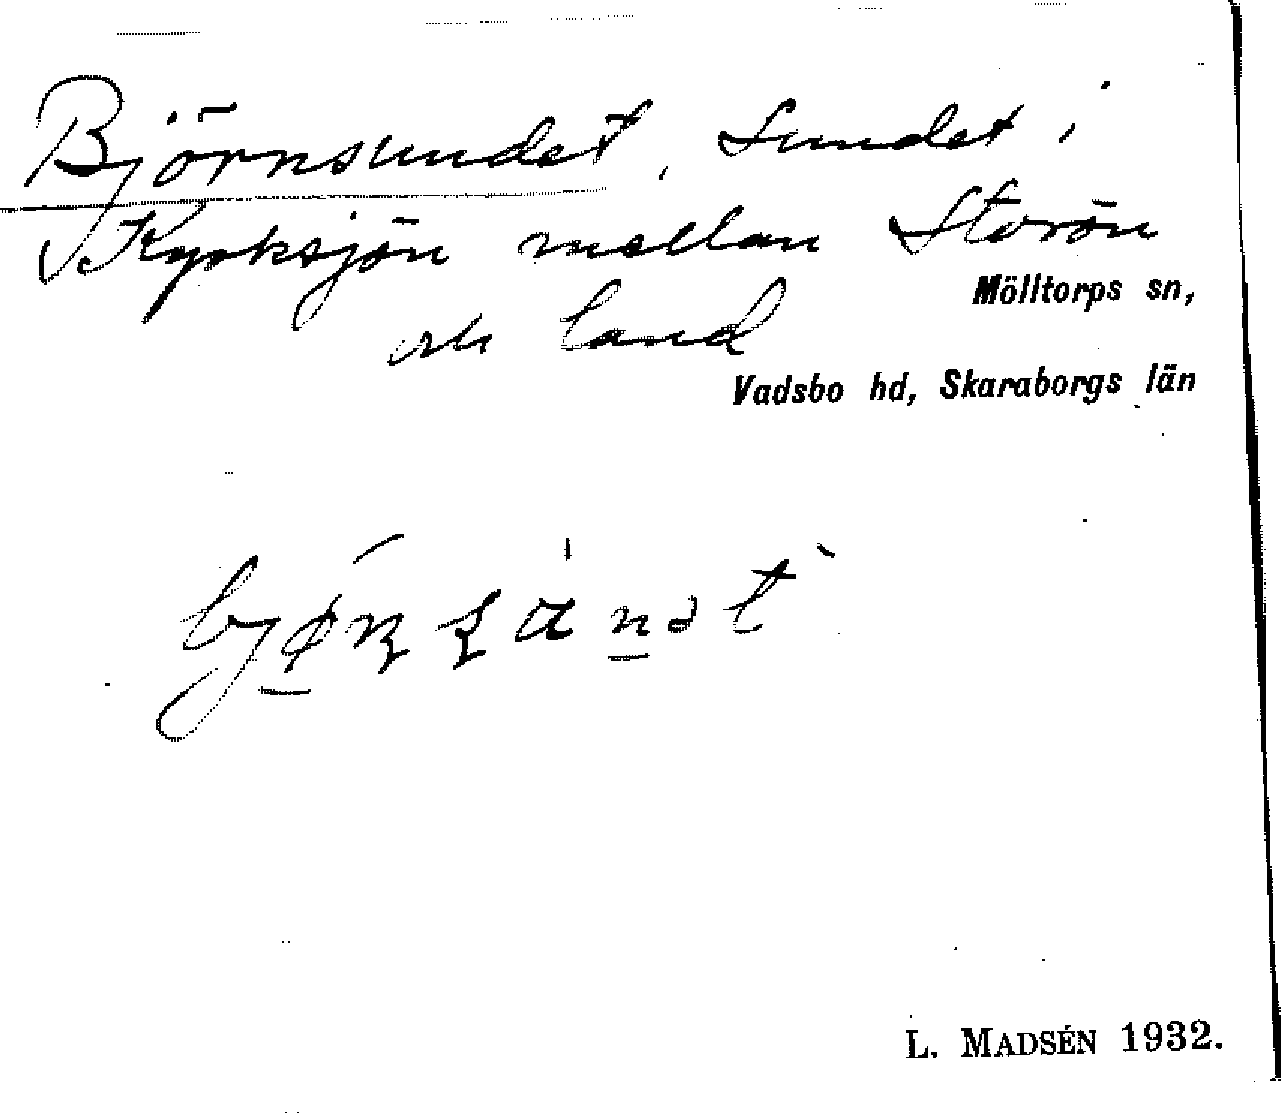 Björnsundet, Sundet i
Kyrksjön mellan Storön
Mölltorps sn,
och land
Vadsbo hd, Skaraborgs län
L. MADSÉN 1932.